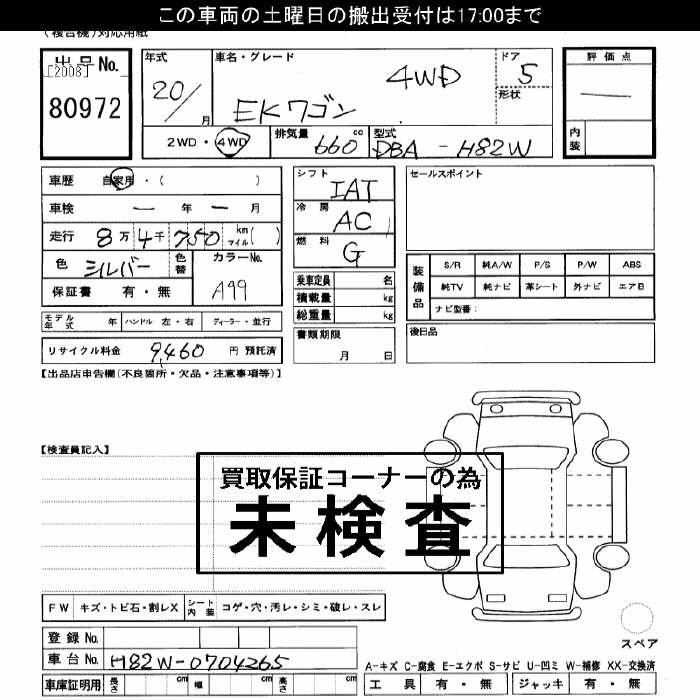 この車両の土曜日の搬出受付は17:00まで
(複合機)対応用紙
出品No.
[2008]
80972
年式
20/
月
車名・グレード
4WD
EKワゴン
ドア
5
形状
評価点
内装
2WD・4WD
排気量
660
cc
型式
DBA-H82W
車歴 自家用・( )
車検 ー 年 ー 月
走行 8万4千750 km マイル( )
色 シルバー 色替
カラーNo.
A99
保証書 有・無
モデル年式 年 ハンドル 左・右 ディーラー・並行
リサイクル料金 9,460 円 預託済
シフト
IAT
冷房
AC
燃料
G
乗車定員 名
積載量 kg
総重量 kg
書類期限
月 日
セールスポイント
装備品
S/R 純A/W P/S P/W ABS
純TV 純ナビ 革シート 外ナビ エアB
ナビ型番:
後日品
【出品店申告欄(不良箇所・欠品・注意事項等)】
【検査員記入】
買取保証コーナーの為
未検査
FW キズ・トビ石・割レX シート内装 コゲ・穴・汚レ・シミ・破レ・スレ
登録No.
車台No. H82W-0704265
車庫証明用 長さ cm 幅 cm 高さ cm
スペア
A-キズ C-腐食 E-エクボ S-サビ U-凹ミ W-補修 XX-交換済
工具 有・無 ジャッキ 有・無